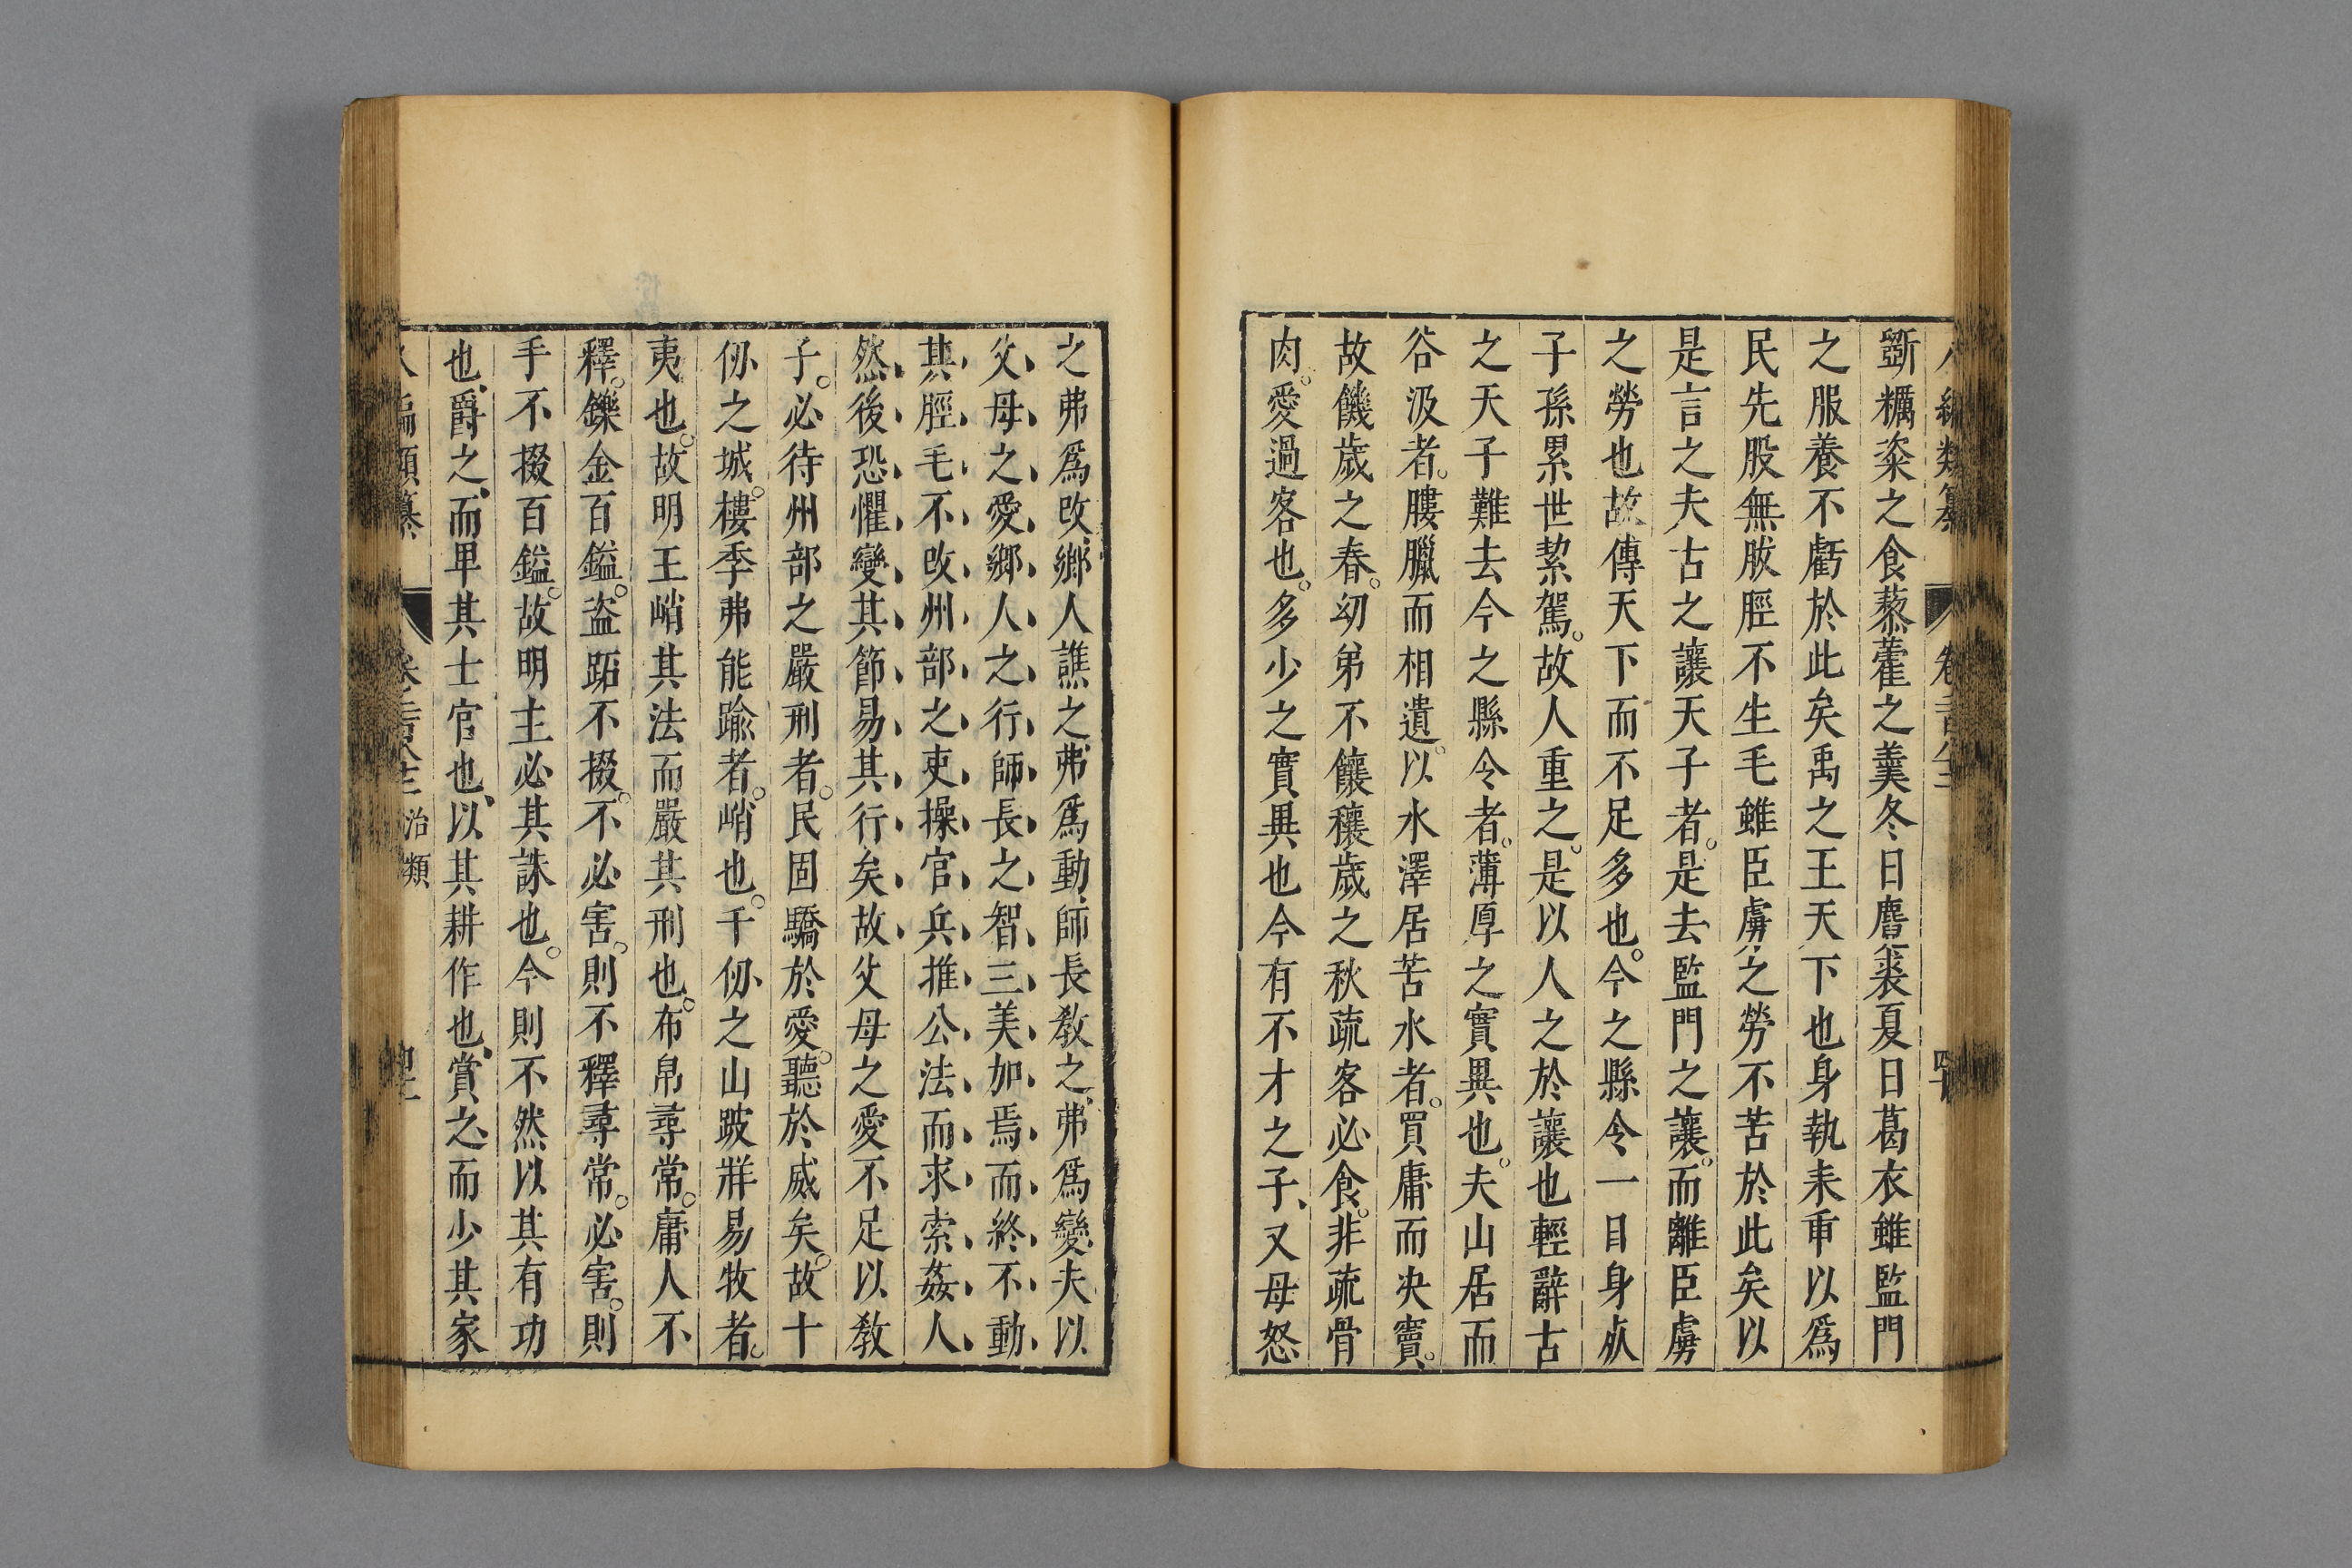 斲糲粢之食藜藿之羹冬日麑裘夏日葛衣雖監門
之服養不虧於此矣禹之王天下也身執耒臿以爲
民先股無胈脛不生毛雖臣虜之勞不苦於此矣以
是言之夫古之讓天子者是去監門之讓而離臣虜
之勞也故傳天下而不足多也今之縣令一日身死
子孫累世絜駕故人重之是以人之於讓也輕辭古
之天子難去今之縣令者薄厚之實異也夫山居而
谷汲者膢臘而相遺以水澤居苦水者買庸而决竇
故饑歲之春㓜弟不饟穰歲之秋疏客必食非疏骨
肉愛過客也多少之實異也今有不才之子又母怒
之弗爲改鄉人譙之弗爲動師長敎之弗爲變夫以
父母之愛鄉人之行師長之智三美加焉而終不動
其脛毛不改州部之吏操官兵推公法而求索姦人
然後恐懼變其節易其行矣故父母之愛不足以敎
子必待州部之嚴刑者民固驕於愛聽於威矣故十
仞之城樓季弗能踰者峭也千仞之山跛牂易牧者
夷也故明王峭其法而嚴其刑也布帛尋常庸人不
釋鑠金百鎰盜跖不掇不必害則不釋尋常必害則
手不掇百鎰故明主必其誅也今則不然以其有功
也爵之而卑其士官也以其耕作也賞之而少其家
治類